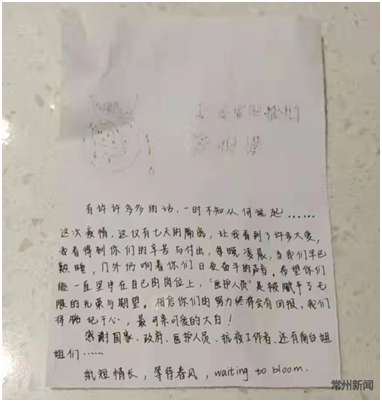 有许许多多的话，一时不知从何说起……
这次疫情，这仅有七天的隔离，让我看到了许多大爱，
我看得到你们的辛苦与付出，每晚凌晨，当我们早已
熟睡，门外仍响着你们日夜奋斗的声音。希望你们
能一直坚守在自己的岗位上，"医护人员"是被赋予了无
限的光荣与期望。相信你们的努力终将会有回报，我们
将铭记于心，最可亲可爱的大白！
感谢国家、政府、医护人员、抗疫工作者、还有前台姐
姐们……
纸短情长，等待春风，waiting to bloom.
常州新闻